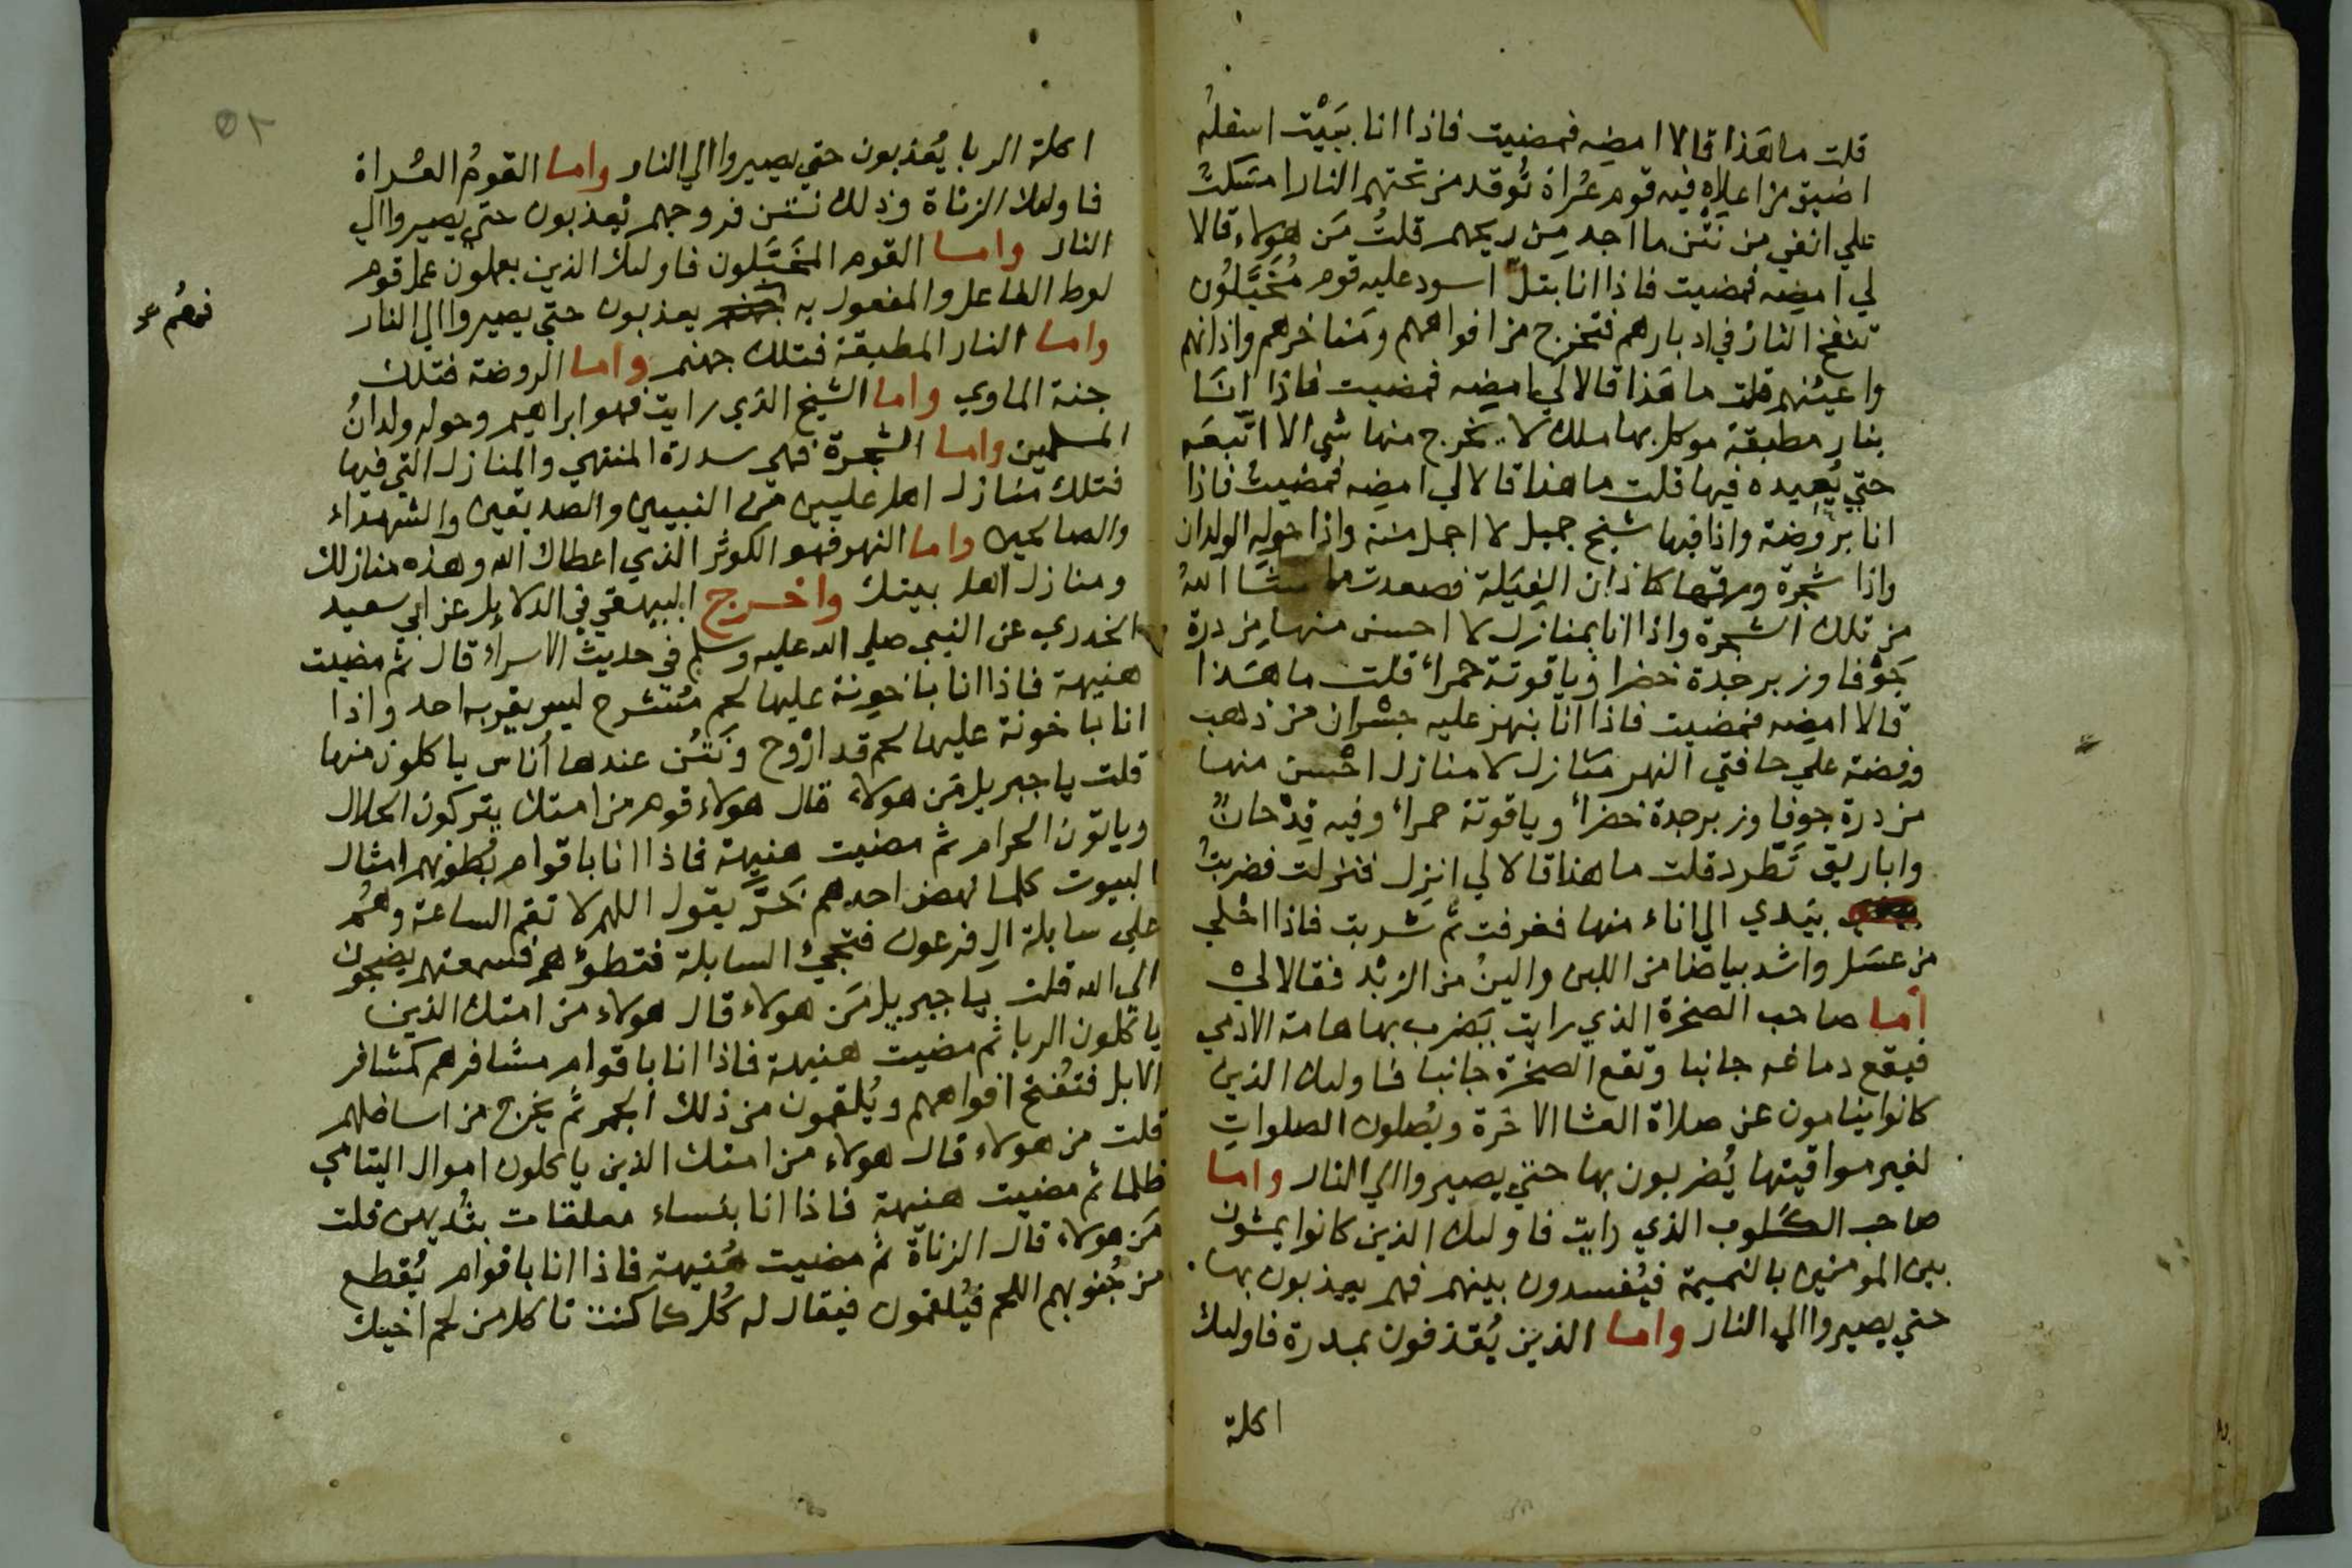 قلت ما هَذا قالا امضِه فمضيت فاذا انا ببَيْت اسفلهُ
اضيق من اعلاه فيه قوم عُراة تُوقد من تحتهم النار امسَكتُ
علي انفي من نَتْن ما اجد مِن ريحهم قلتُ مَن هولاء قالا
لي امضِه فمضيت فاذا انا بتلّ اسود عليه قوم مُخَبَّلُون
تنفخ النارُ في ادبارهم فتخرج من افواههم ومَناخرهم واذانهم
واعينُهم قلت ما هَذا قالا لي امضِه فمضيت فاذا انَا
بنار مطبقة موكل بها ملك لا يخرج منها شي الا اتَّبعَه
حتي يُعِيده فيها قلت ما هذا قالا لي امضِه فمضيت فاذا
انا بروضة واذا فيها شيخ جميل لا اجمل منه واذا حوله الولدان
واذا شجرة ورقها كاذان الفِيَلة فصعدت ما شَا اللهُ
من تلك الشجرة واذا انا بمنازل لا احسن منها مِن درة
جَوْفا وزبرجدة خضرا وياقوتة حمراء قلت ما هَذا
قالا امضِه فمضيت فاذا انا بنهر عليه جِسْران من ذهب
وفضة علي حافتي النهر مَنازل لا منازل احْسن منها
من درة جوفا وزبرجدة خضراء وياقوتة حمراء وفيه قِدْحانٌ
واباريق تَطّرد قلت ما هذا قالا لي انزِل فنزلت فضربتُ
بيَدي الي اناء منها فغرفت ثم شربت فاذا احْلي
من عسَل واشد بياضا من اللبن والينُ من الزبْد فقالا لي
أما صاحب الصخرة الذي رايت يَضرب بها هامة الادمي
فيقع دماغه جانبا وتقع الصخرة جانبا فاوليك الذين
كانوا ينامون عن صلاة العشا الاخرة ويُصلون الصلواتِ
لغير مواقيتها يُضربون بها حتي يصيروا الي النار واما
صاحب الكَلوب الذي رايت فاوليك الذين كانوا يمشون
بين المومنين بالنميمة فيُفسدون بينهم فهم يعذبون بها
حتي يصيروا الي النار واما الذين يُقذفون بمدرة فاوليك
اكلة
٥٢
اكلة الربا يُعَذبون حتي يصيروا الي النار واما القومُ العُراة
فاوليك الزناة وذلك نَتْن فروجهم يُعذبون حتي يصيروا الي
النار واما القوم المخَبَّلون فاوليك الذين يعملون عمل قوم
لوط الفاعل والمفعول به يعذبون حتي يصيروا الي النار
فهُم
واما النار المطبقة فتلك جهنم واما الروضة فتلك
جنة الماوي واما الشيخ الذي رايت فهو ابراهيم وحوله ولدانُ
المسلمين واما الشجرة فهي سدرة المنتهي والمنازل التي فيها
فتلك منازل اهل عليين من النبيين والصديقين والشهداء
والصالحين واما النهر فهو الكوثر الذي اعطاك الله وهذه منازلك
ومنازل اهل بيتك واخرج البيهقي في الدلايل عن ابي سعيد
الخدري عن النبي صلي الله عليه وسلم في حديث الاسراء قال ثم مضيت
هنيهة فاذا انا باخونة عليها لحم مُتشرح ليس يقربه احد واذا
انا باخونة عليها لحم قد ازْوح ونَتُن عندها أناس ياكلون منها
قلت يا جبريل مَن هولاء قال هولاء قوم من امتك يتركون الحلال
وياتون الحرام ثم مضيت هنيهة فاذا انا باقوام بُطونهم امثال
البيوت كلما نهض احدهم خَرَّ يقول اللهم لا تقم الساعة وهُم
علي سابلة ال فرعون فتجئ السابلة فتطؤهم فسمعتهم يضجون
الي الله قلت يا جبريل مَن هولاء قال هولاء من امتك الذين
ياكلون الربا ثم مضيت هنيهة فاذا انا باقوام مشافرهم كمشافر
الابل فتُفتح افواههم ويُلقمون من ذلك الجمر ثم يخرج من اسافلهم
قلت من هولاء قال هولاء من امتك الذين ياكلون اموال اليتامي
ظلما ثم مضيت هنيهة فاذا انا بنساء معلقات بثُديهن قلت
مَن هولاء قال الزناة ثم مضيت هُنيهة فاذا انا باقوام يُقطع
من جُنوبهم اللحم فيُلقمون فيقال له كُل كما كنت تاكل من لحم اخيك